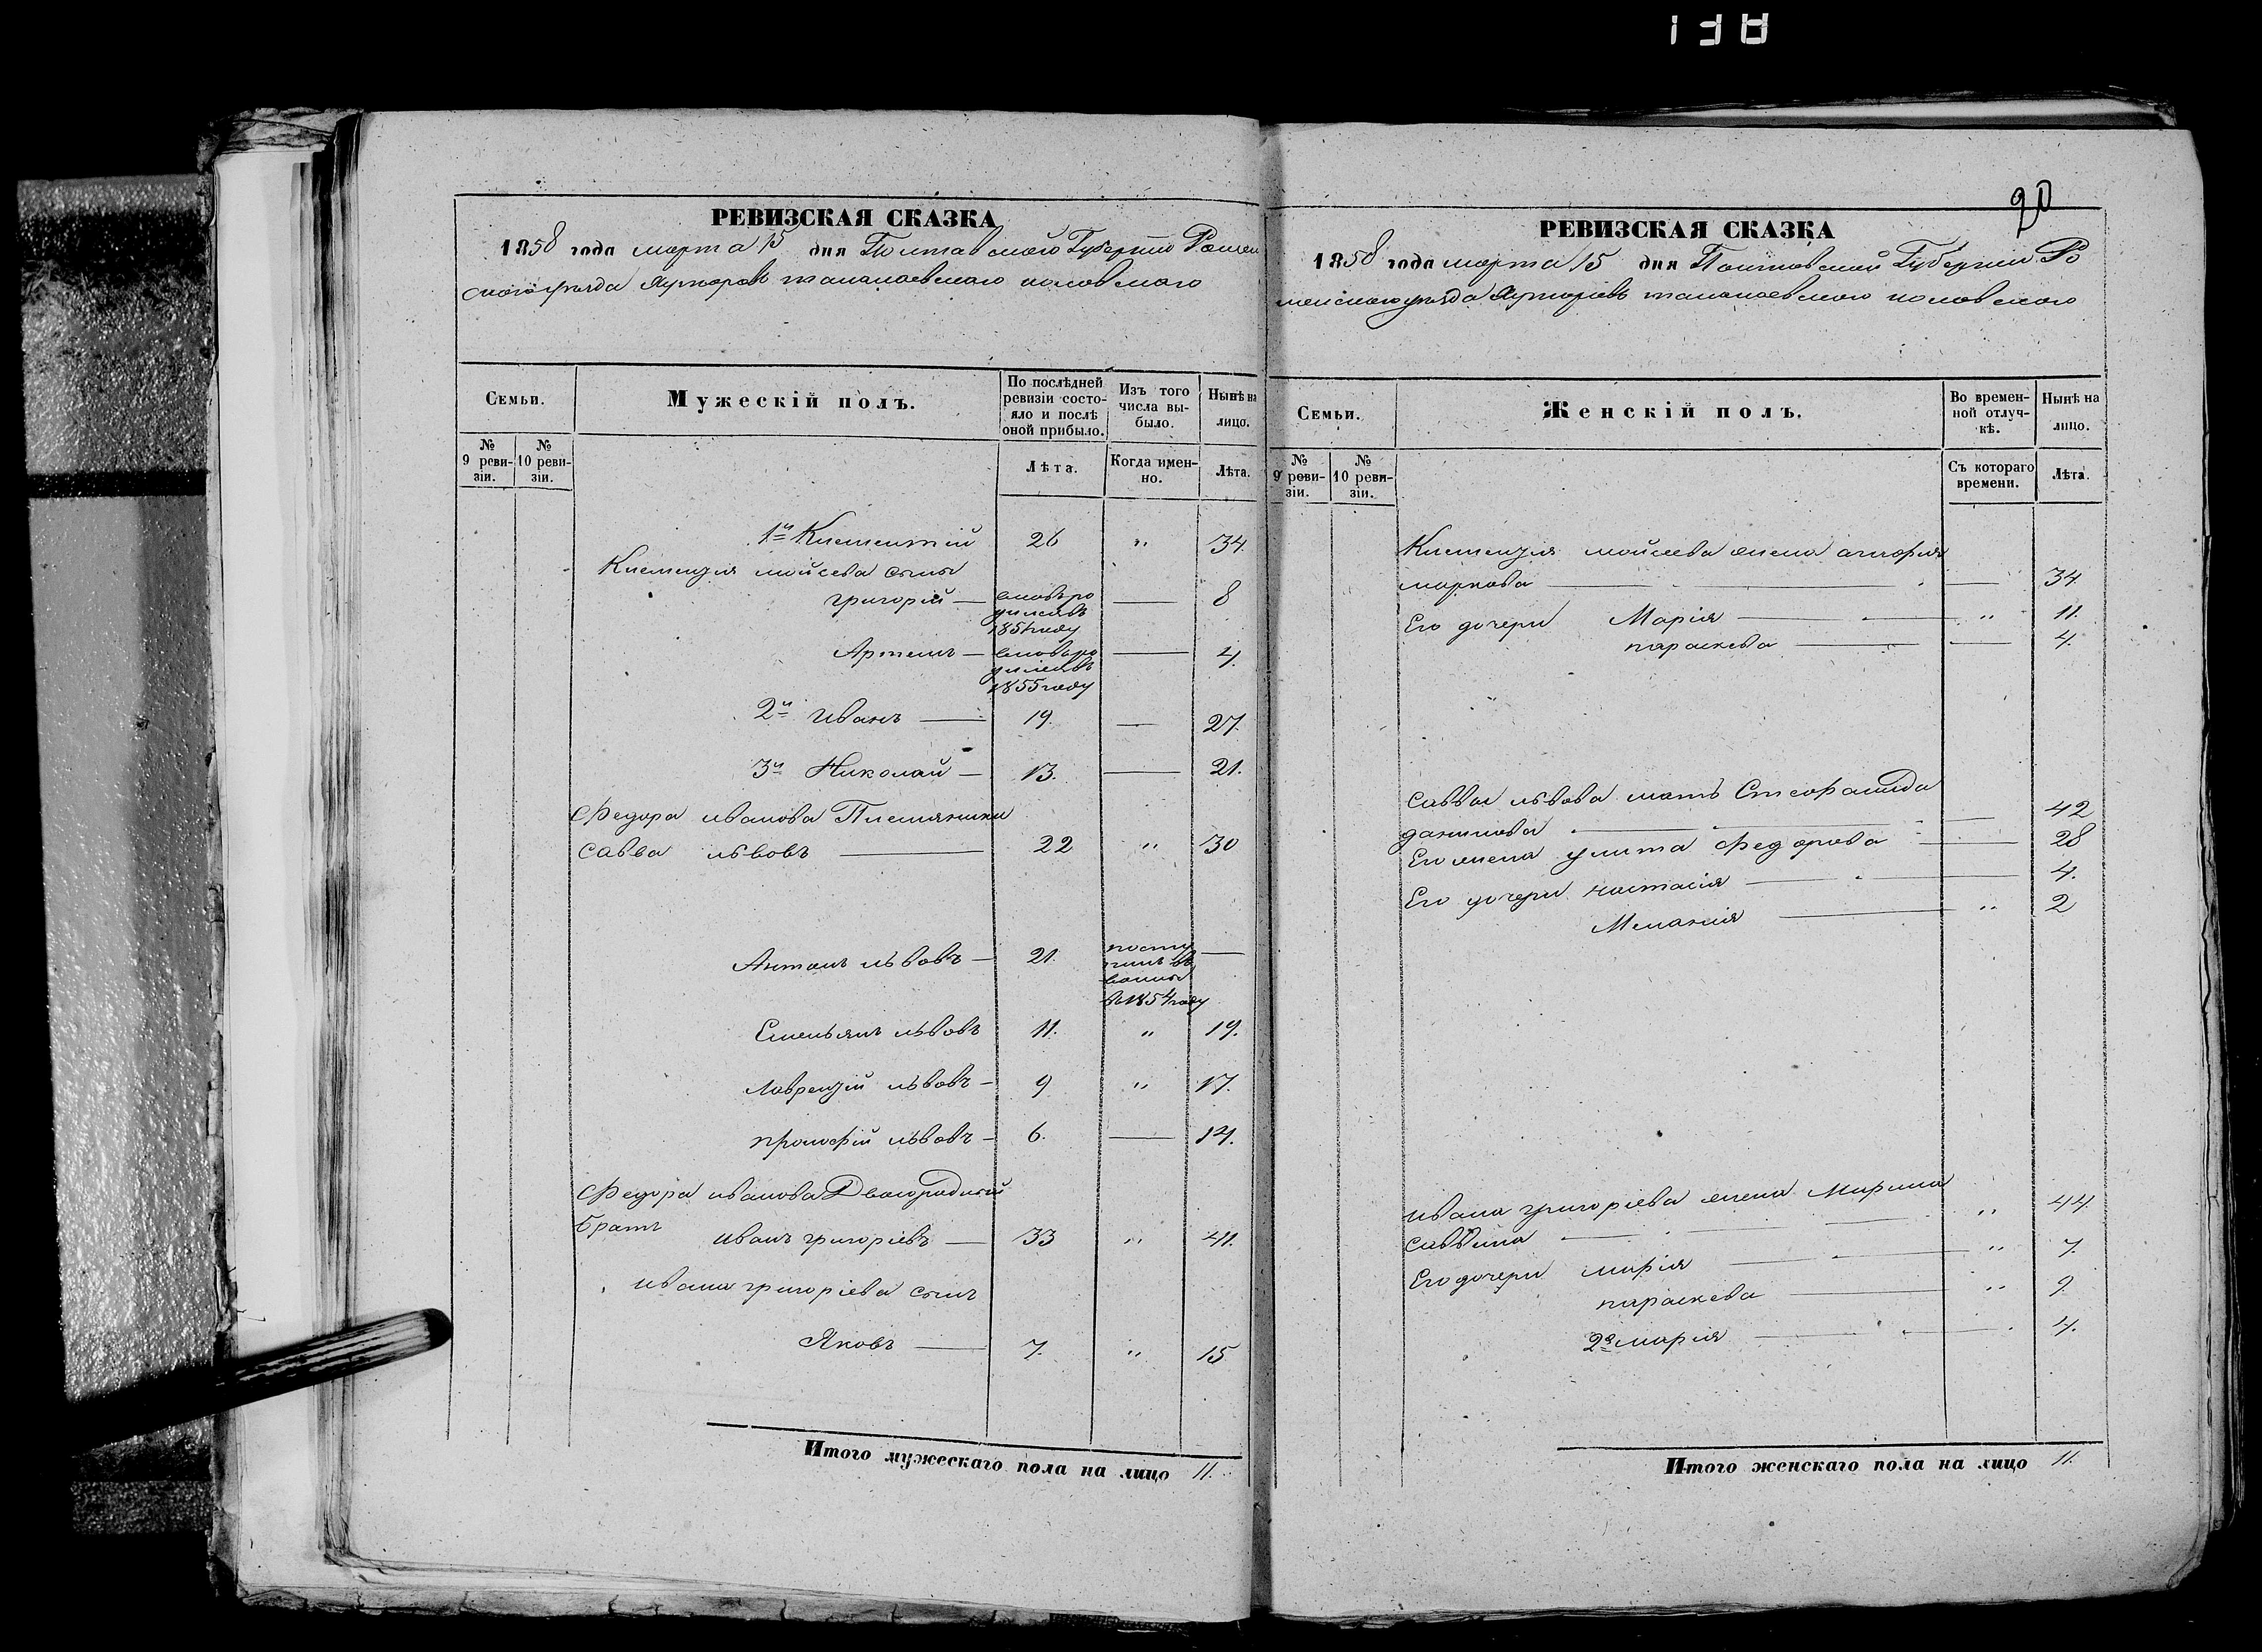 138
РЕВИЗСКАЯ СКАЗКА
1858 года марта 15 дня Полтавской Губерніи Ромен
скаго уезда Хуторовъ талалаевскаго
Семьи.
Мужескій полъ.
По послѣдней ревизіи состояло и послѣ оной прибыло.
Изъ того числа выбыло.
Нынѣ на лицо.
№ 9 ревизіи.
№ 10 ревизіи.
Лѣта.
Когда именно.
Лѣта.
1й Климентій 26 " 34.
Клементія мойсева сыны
григорій — вновь ро — 8
дился въ
1851 году
Артемъ — вновь ро — 4.
дился въ
1855 году
2й иванъ — 19. — 27.
3й Николай — 13. — 21.
Федора иванова Племянники
Савва львовъ — 22 " 30
Антонъ львовъ — 21. посту —
пилъ въ
1854 году
Емельянъ львовъ 11. " 19.
Лаврентій львовъ — 9 " 17.
львовъ — 6. — 14.
Федора иванова Двоюродный
братъ иванъ григоріевъ — 33 " 41.
ивана григоріева сынъ
Яковъ — 7. " 15
Итого мужескаго пола на лицо 11.
20
РЕВИЗСКАЯ СКАЗКА
1858 года марта 15 дня Полтавской Губерніи Ро
менскаго уезда Хуторовъ талалаевскаго
Семьи.
Женскій полъ.
Во временной отлучкѣ.
Нынѣ на лицо.
№ 9 ревизіи.
№ 10 ревизіи.
Съ котораго времени.
Лѣта.
Клементія мойсеева жена
маркова — — 34
Его дочери Марія — " 11.
параскева — — 4.
Саввы львова мать Стефанида
данилова — — 42
Его жена улита Федорова — 28
Его дочери настасія — 4.
Меланія — " 2
ивана григоріева жена Марина
саввина — " 44
Его дочери марія — " 7.
параскева — " 9.
2я марія — 4.
Итого женскаго пола на лицо 11.